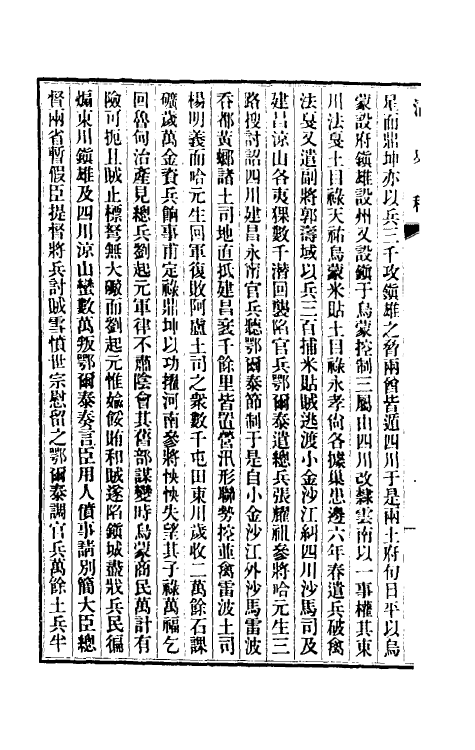 是而鼎坤亦以兵三千攻鎭雄之脅兩酋皆遁四川于是兩土府旬日平以烏
蒙設府鎭雄設州又設鎭于烏蒙控制三屬由四川改隸雲南以一事權其東
川法戛土目祿天祐烏蒙米貼土目祿永孝尙各據巢患邊六年春遣兵破禽
法戛又遣副將郭濤域以兵三百捕米貼賊逃渡小金沙江糾四川沙馬司及
建昌涼山各夷猓數千潛回襲陷官兵鄂爾泰遣總兵張耀祖參將哈元生三
路搜討詔四川建昌永甯官兵聽鄂爾泰節制于是自小金沙江外沙馬雷波
吞都黃螂諸土司地直抵建昌袤千餘里皆置營汛形聯勢控並禽雷波土司
楊明義而哈元生回軍復敗阿盧土司之衆數千屯田東川歲收二萬餘石課
礦歲萬金資兵餉事甫定祿鼎坤以功擢河南參將怏怏失望其子祿萬福乞
回魯甸治產見總兵劉起元軍律不肅陰會其舊部謀變時烏蒙商民萬計有
險可扼且賊止標弩無大礟而劉起元惟婾餒賄和賊遂陷鎭城盡戕兵民徧
煽東川鎭雄及四川涼山蠻數萬叛鄂爾泰奏言臣用人僨事請別簡大臣總
督兩省暫假臣提督將兵討賊雪憤世宗慰留之鄂爾泰調官兵萬餘土兵半